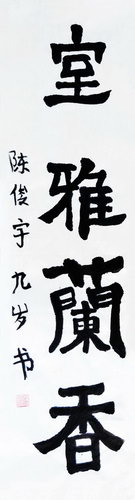 室雅蘭香
陈俊宇九岁书